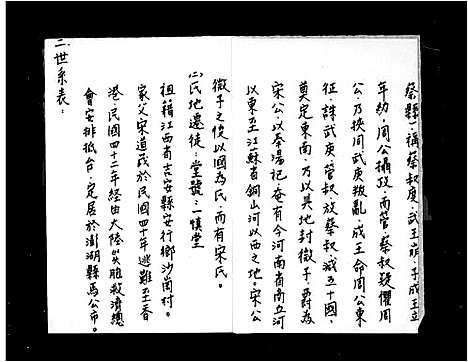 蔡縣一稱蔡叔度,武王崩,子成王立
年幼,周公攝政,而管、蔡叔疑懼周
公乃挾同武庚叛亂,成王命周公東
征,誅武庚管叔放蔡叔滅五十國,
奠定東南,乃以其地封微子,爵為
宋公,以奉湯祀,奄有今河南省商立河
以東至江蘇省銅山河以西之地。宋公
微子之後以國為氏,而有宋氏。
㈡氏地遷徒:堂號:一慎堂
祖籍江西省吉安縣安行鄉沙崗村。
家父宋道茂於民國四十年逃難至香
港,民國四十二年經由大陸災胞救濟總
會安排抵台,定居於澎湖縣馬公市。
二、世系表: